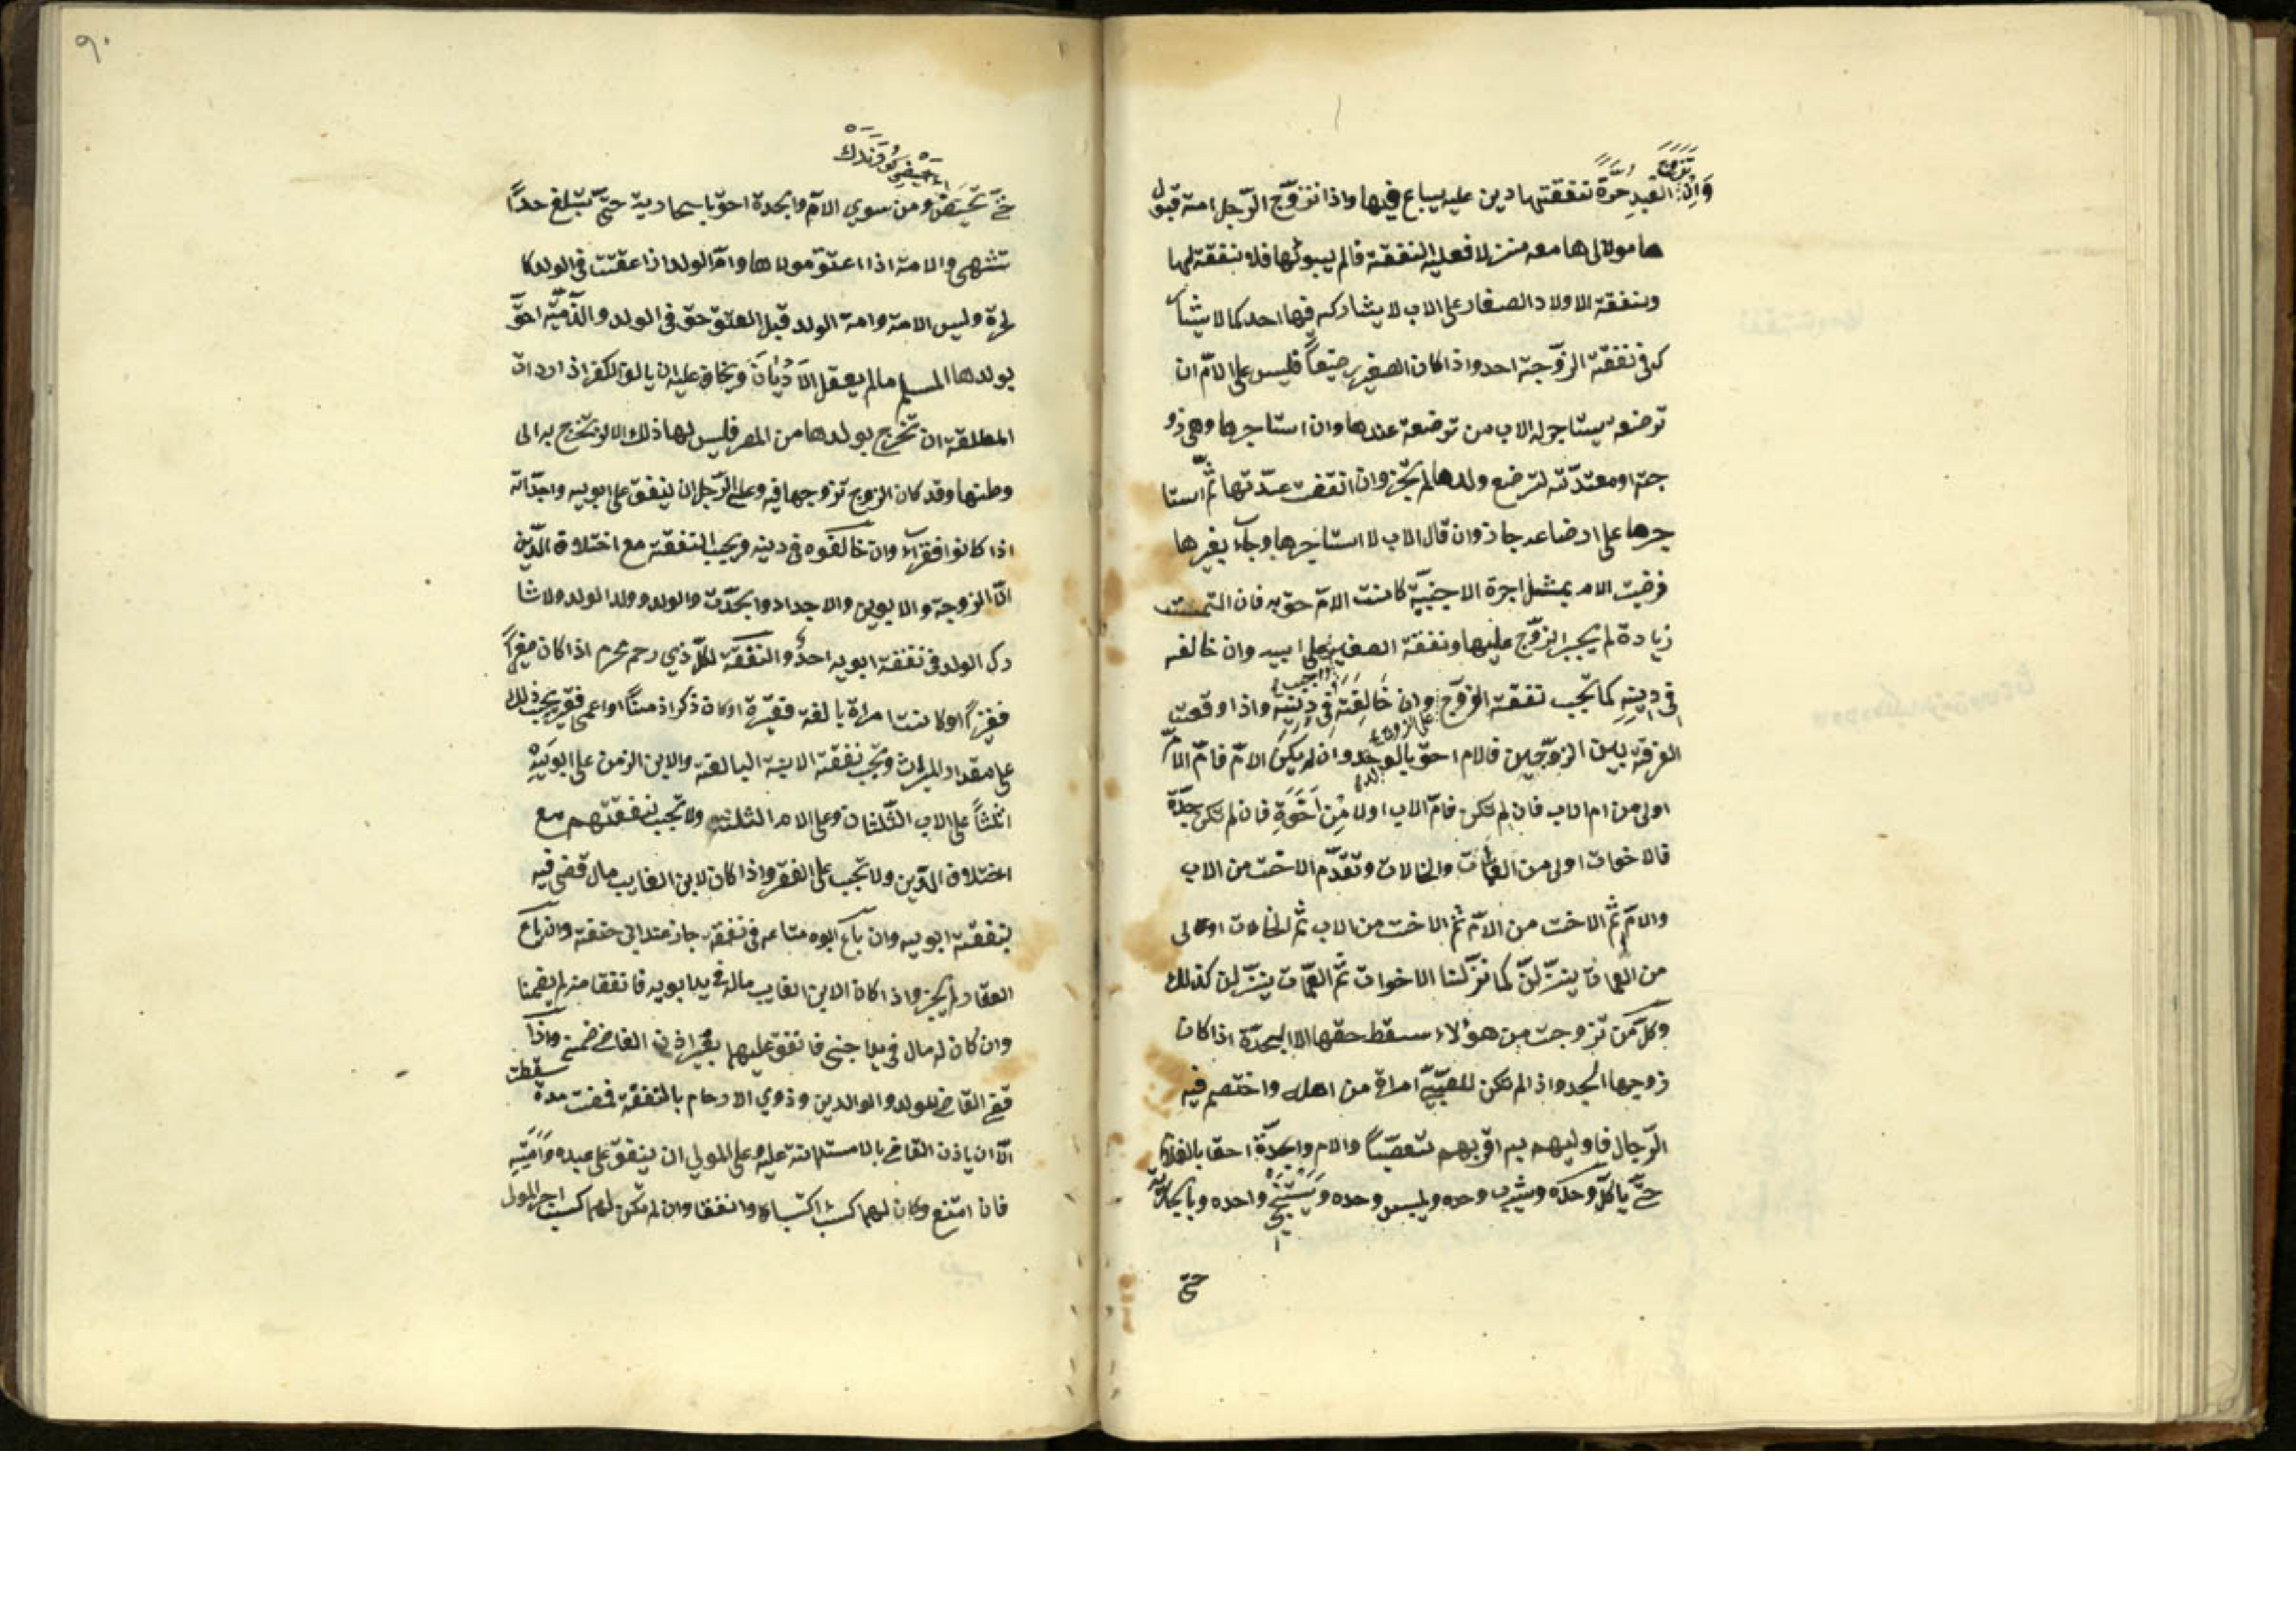 تزوج
وان العبد حرّة نفقتها دين عليه يباع فيها واذا تزوّج الرّجل امة قبوّا
ها مولاها معه منزلا فعليه النفقة فالم يبوئها فلا نفقة لها
ونفقة الاولاد الصغار على الاب لا يشاركه فيها احد كما لا يشا
كه فى نفقة الزوّجة احد واذا كان الصغير رضيعاً فليس على الامّ ان
ترضعه يستاجر له الاب من ترضعه عندها وان استاجرها وهى زو
جته او معتدّته لترضع ولدها لم يجز وان انقضت عدّتها ثمّ استا
جرها على ارضاعه جاز وان قال الاب لا استاجرها وجاء بغيرها
فرضيت الام بمثل اجرة الاجنبيّة كانت الامّ احق به فان التمست
زيادة لم يجبر الزوّج عليها ونفقة الصغير على ابيه وان خالفه
واجب
فى دينه كما تجب نفقة الزوّج وان خالفته فى دينه واذا وقعت
على الزوج
الفرقة بين الزوّجين فالام احق بالولد وان لم يكن الامّ فامّ الامّ
اولى من ام الاب فان لم تكن فامّ الاب اولا من اخوة فان لم تكن جدّة
فالاخوات اولى من العمّات والخالات وتقدّم الاخت من الاب
والامّ ثمّ الاخت من الامّ ثمّ الاخت من الاب ثمّ الخالات اولى
من العمات ينزّلنّ كما نزّلنا الاخوات ثمّ العمّات ينزّلن كذلك
وكلّ من تزوجت من هؤلاء سقط حقها الا الجدّة اذا كان
زوجها الجد واذا لم تكن للصّبيّ امراة من اهله واختصم فيه
الرّجال فاوليهم به اقربهم تعصّباً والام والجدّة احق بالغلام
حتّى ياكل وحده ويشرب وحده ويلبس وحده ويستنجى واحده وبالجارية
حتى
حتّى تحيض ومن سوى الامّ والجدة احق بالجارية حتّى تبلغ حدّاً
تشتهى والامة اذا اعتق مولاها وامّ الولد اذا عتقت فى الولد كا
لحرة وليس الامة وامة الولد قبل العتق حق فى الولد والذّميّه احقّ
بولدها المسلم مالم يعقل الاديان ويخاف عليه ان يالف الكفر اذا ارادت
المطلقة ان تخرج بولدها من المصر فليس لها ذلك الا ان تخرج به الى
وطنها وقد كان الزوج تزوجها فيه وعلى الرّجل ان ينفق على ابويه واجدّاته
اذا كانوا فقرآء وان خالفوه فى دينه ويجب النفقة مع اختلاف الدّين
الّا الزوجة والابوين والاجداد والجدّت والولد وولد الولد ولا شا
رك الولد فى نفقة ابويه احدٌ والنفقة لكلّ ذي رحم محرم اذا كان صغيراً
فقيراً او كانت امراة بالغة فقيرة او كان ذكرا زمناً او اعمى فقير يجب ذلك
على مقدار الميراث وتجب نفقة الابنة البالغة والابن الزمن على ابويه
اثلثاً على الاب الثّلثان وعلى الام الثلث ولا تجب نفقتهم مع
اختلاف الدّين ولا تجب على الفقر واذا كان لابن الغايب مال قضى فيه
بنفقة ابويه وان باع ابوه متاعه فى نفقة جاز عند ابي حنفة وان باع
العقار لم يجز واذا كان الابن الغايب ماله فى يد ابويه فانفقا منه لم يضمنا
وان كان له مال فى يد اجنبى فانفق عليهما بغير اذن القاضى ضمن واذا
سقطت
قضى القاضى للولد والوالدين وذوي الارحام بالنفقة فمضت مدة
الّا ان ياذن القاضى بالاستدانة عليه وعلى المولي ان ينفق على عبده وامته
فان امتنع وكان لهما كسب اكتسبا وانفقا وان لم تكن لهما كسب اجر المولى